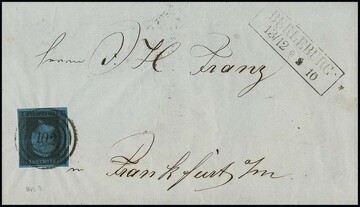 BERLEBURG
13/12 * 9 10
Herrn J. H. Franz
102
in Frankfurt a/m.